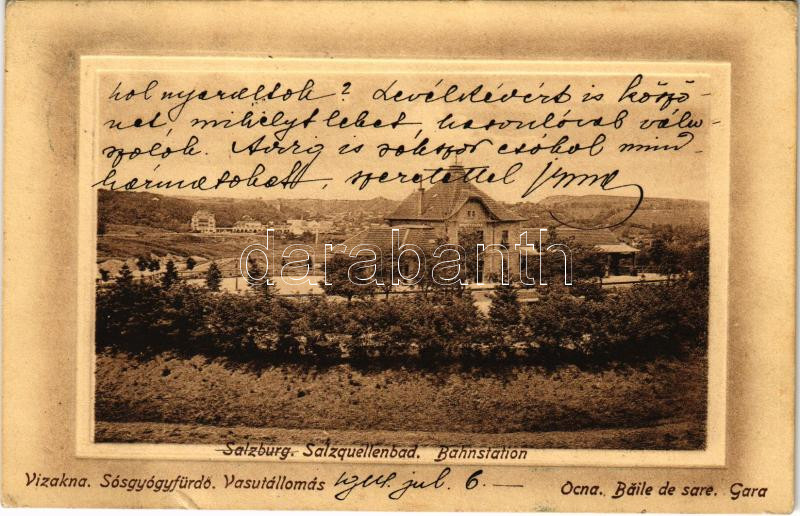 hol nyaraltok? Levélkédért is köszö-
net, mihelyt lehet hasonlóval vála-
szolok. Addig is sokszor csókol mind-
hármatokat, szeretettel Irma
darabanth
Salzburg. Salzquellenbad. Bahnstation
Vizakna. Sósgyógyfürdő. Vasutállomás
jul. 6. —
Ocna. Băile de sare. Gara